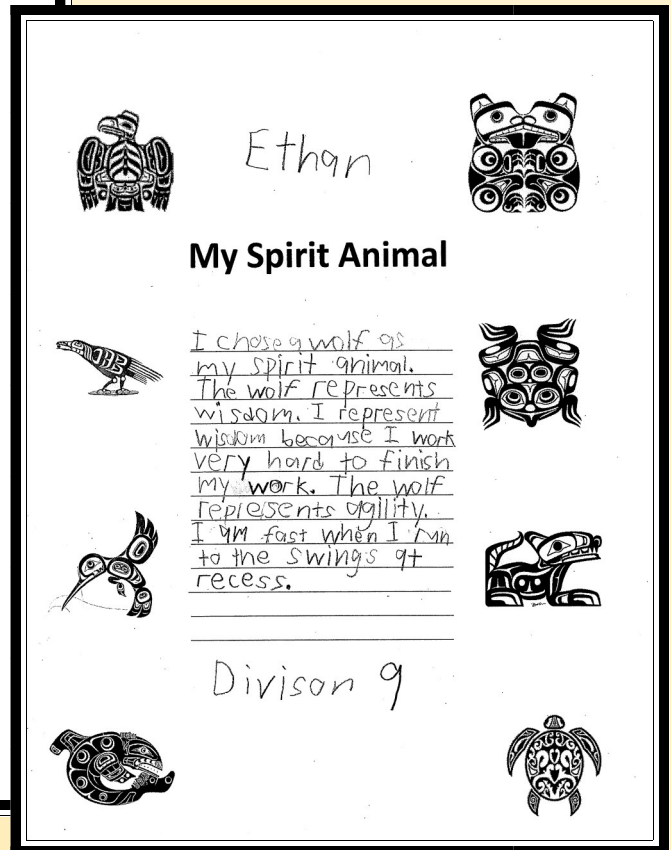 Ethan
My Spirit Animal
I chose a wolf as
my spirit animal.
The wolf represents
wisdom. I represent
wisdom because I work
very hard to finish
my work. The wolf
represents agility.
I am fast when I run
to the swings at
recess.
Divison 9